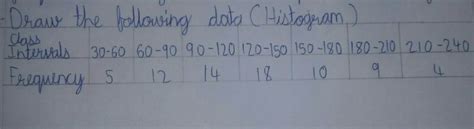 Draw the following data (Histogram)
Class
Intervals 30-60 60-90 90-120 120-150 150-180 180-210 210-240
Frequency 5 12 14 18 10 9 4